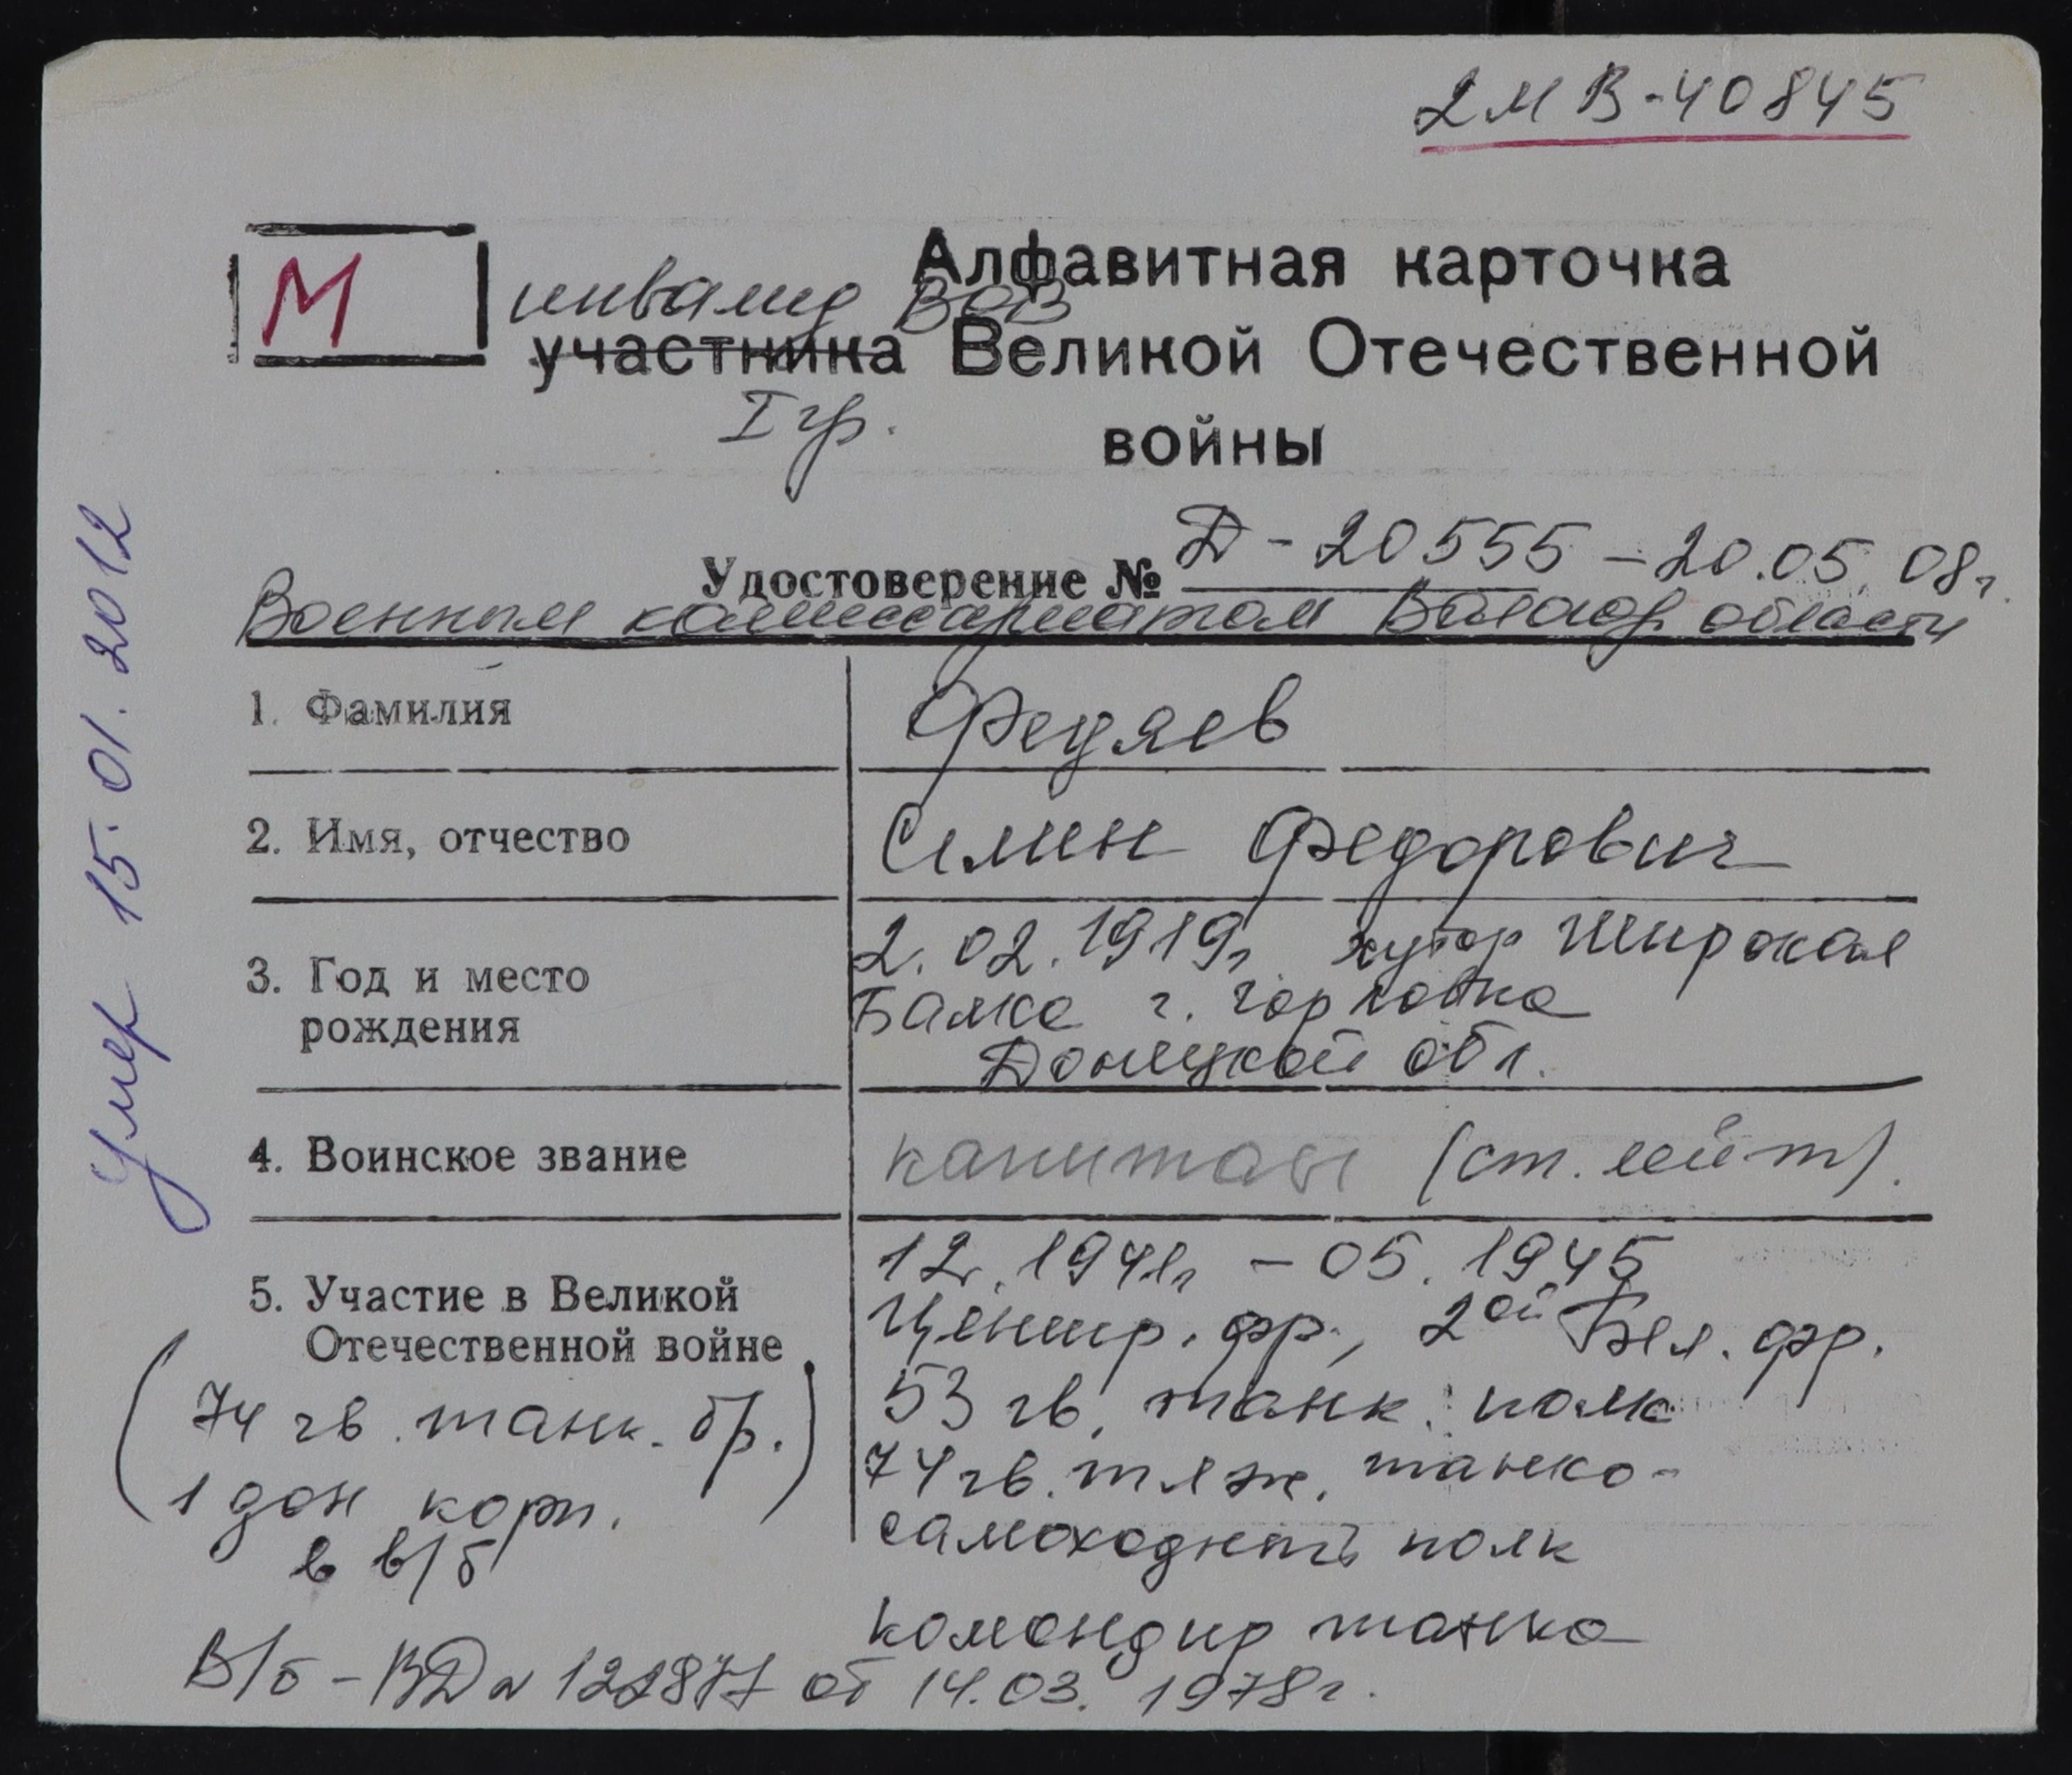 2МВ-40845
М
Алфавитная карточка
инвалид ВОВ
участника Великой Отечественной
I гр.
войны
Удостоверение № Д-20555-20.05.08г.
Военным комиссариатом области
1. Фамилия
Федяев
2. Имя, отчество
Семен Федорович
3. Год и место
рождения
2.02.1919г хутор Широкая
Балка г. Горловка
Донецкой обл.
4. Воинское звание
капитан (ст. лейт).
5. Участие в Великой
Отечественной войне
12.1941г - 05.1945
Центр. фр., 2ой Бел. фр.
53 гв. танк. полк
74 гв. тяж. танко-
самоходный полк
командир танка
(74 гв. танк. бр.)
1 дон корп.
в в/б
В/б - ВД № 122877 от 14.03.1978г.
Умер 15.01.2012